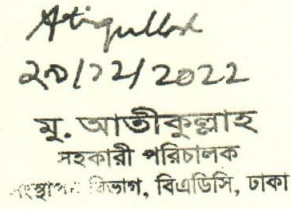 Atiqullah
২৯/১২/২০২২
মু. আতীকুল্লাহ
সহকারী পরিচালক
সংস্থাপন বিভাগ, বিএডিসি, ঢাকা